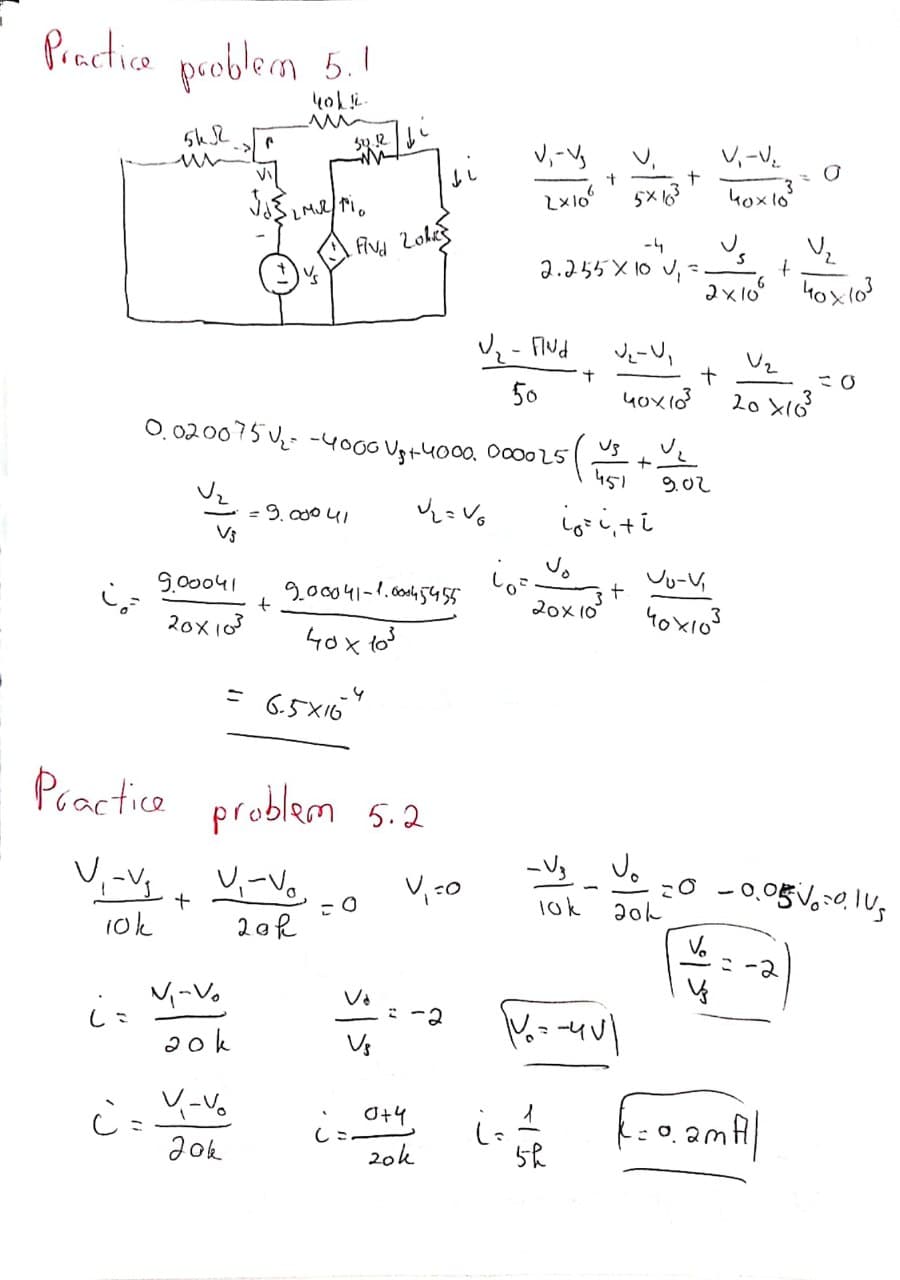 Practice problem 5.1
40kΩ
5kΩ 50Ω ↓i
V1 ↓i
Vd 2MΩ ↑io
+ - AVd 20kΩ
+ - Vs
(V1-Vs)/(2×10^6) + V1/(5×10^3) + (V1-V2)/(40×10^3) = 0
2.255×10^-4 V1 = Vs/(2×10^6) + V2/(40×10^3)
(V2-AVd)/50 + (V2-V1)/(40×10^3) + V2/(20×10^3) = 0
0.020075V2 = -4000Vs+4000.000025(Vs/451 + V2/9.02
V2/Vs = 9.00041 V2=Vo io=i1+i
io = 9.00041/(20×10^3) + (9.00041-1.0045455)/(40×10^3) io = Vo/(20×10^3) + (Vo-V1)/(40×10^3)
= 6.5×10^-4
Practice problem 5.2
(V1-Vs)/10k + (V1-Vo)/20k = 0 V1=0 -Vs/10k - Vo/20k = 0 -0.05Vo=0.1Vs
Vo/Vs = -2
i = (V1-Vo)/20k Vo/Vs = -2 Vo=-4V
i = (V1-Vo)/20k i = (0+4)/20k i = 1/5k i=0.2mA